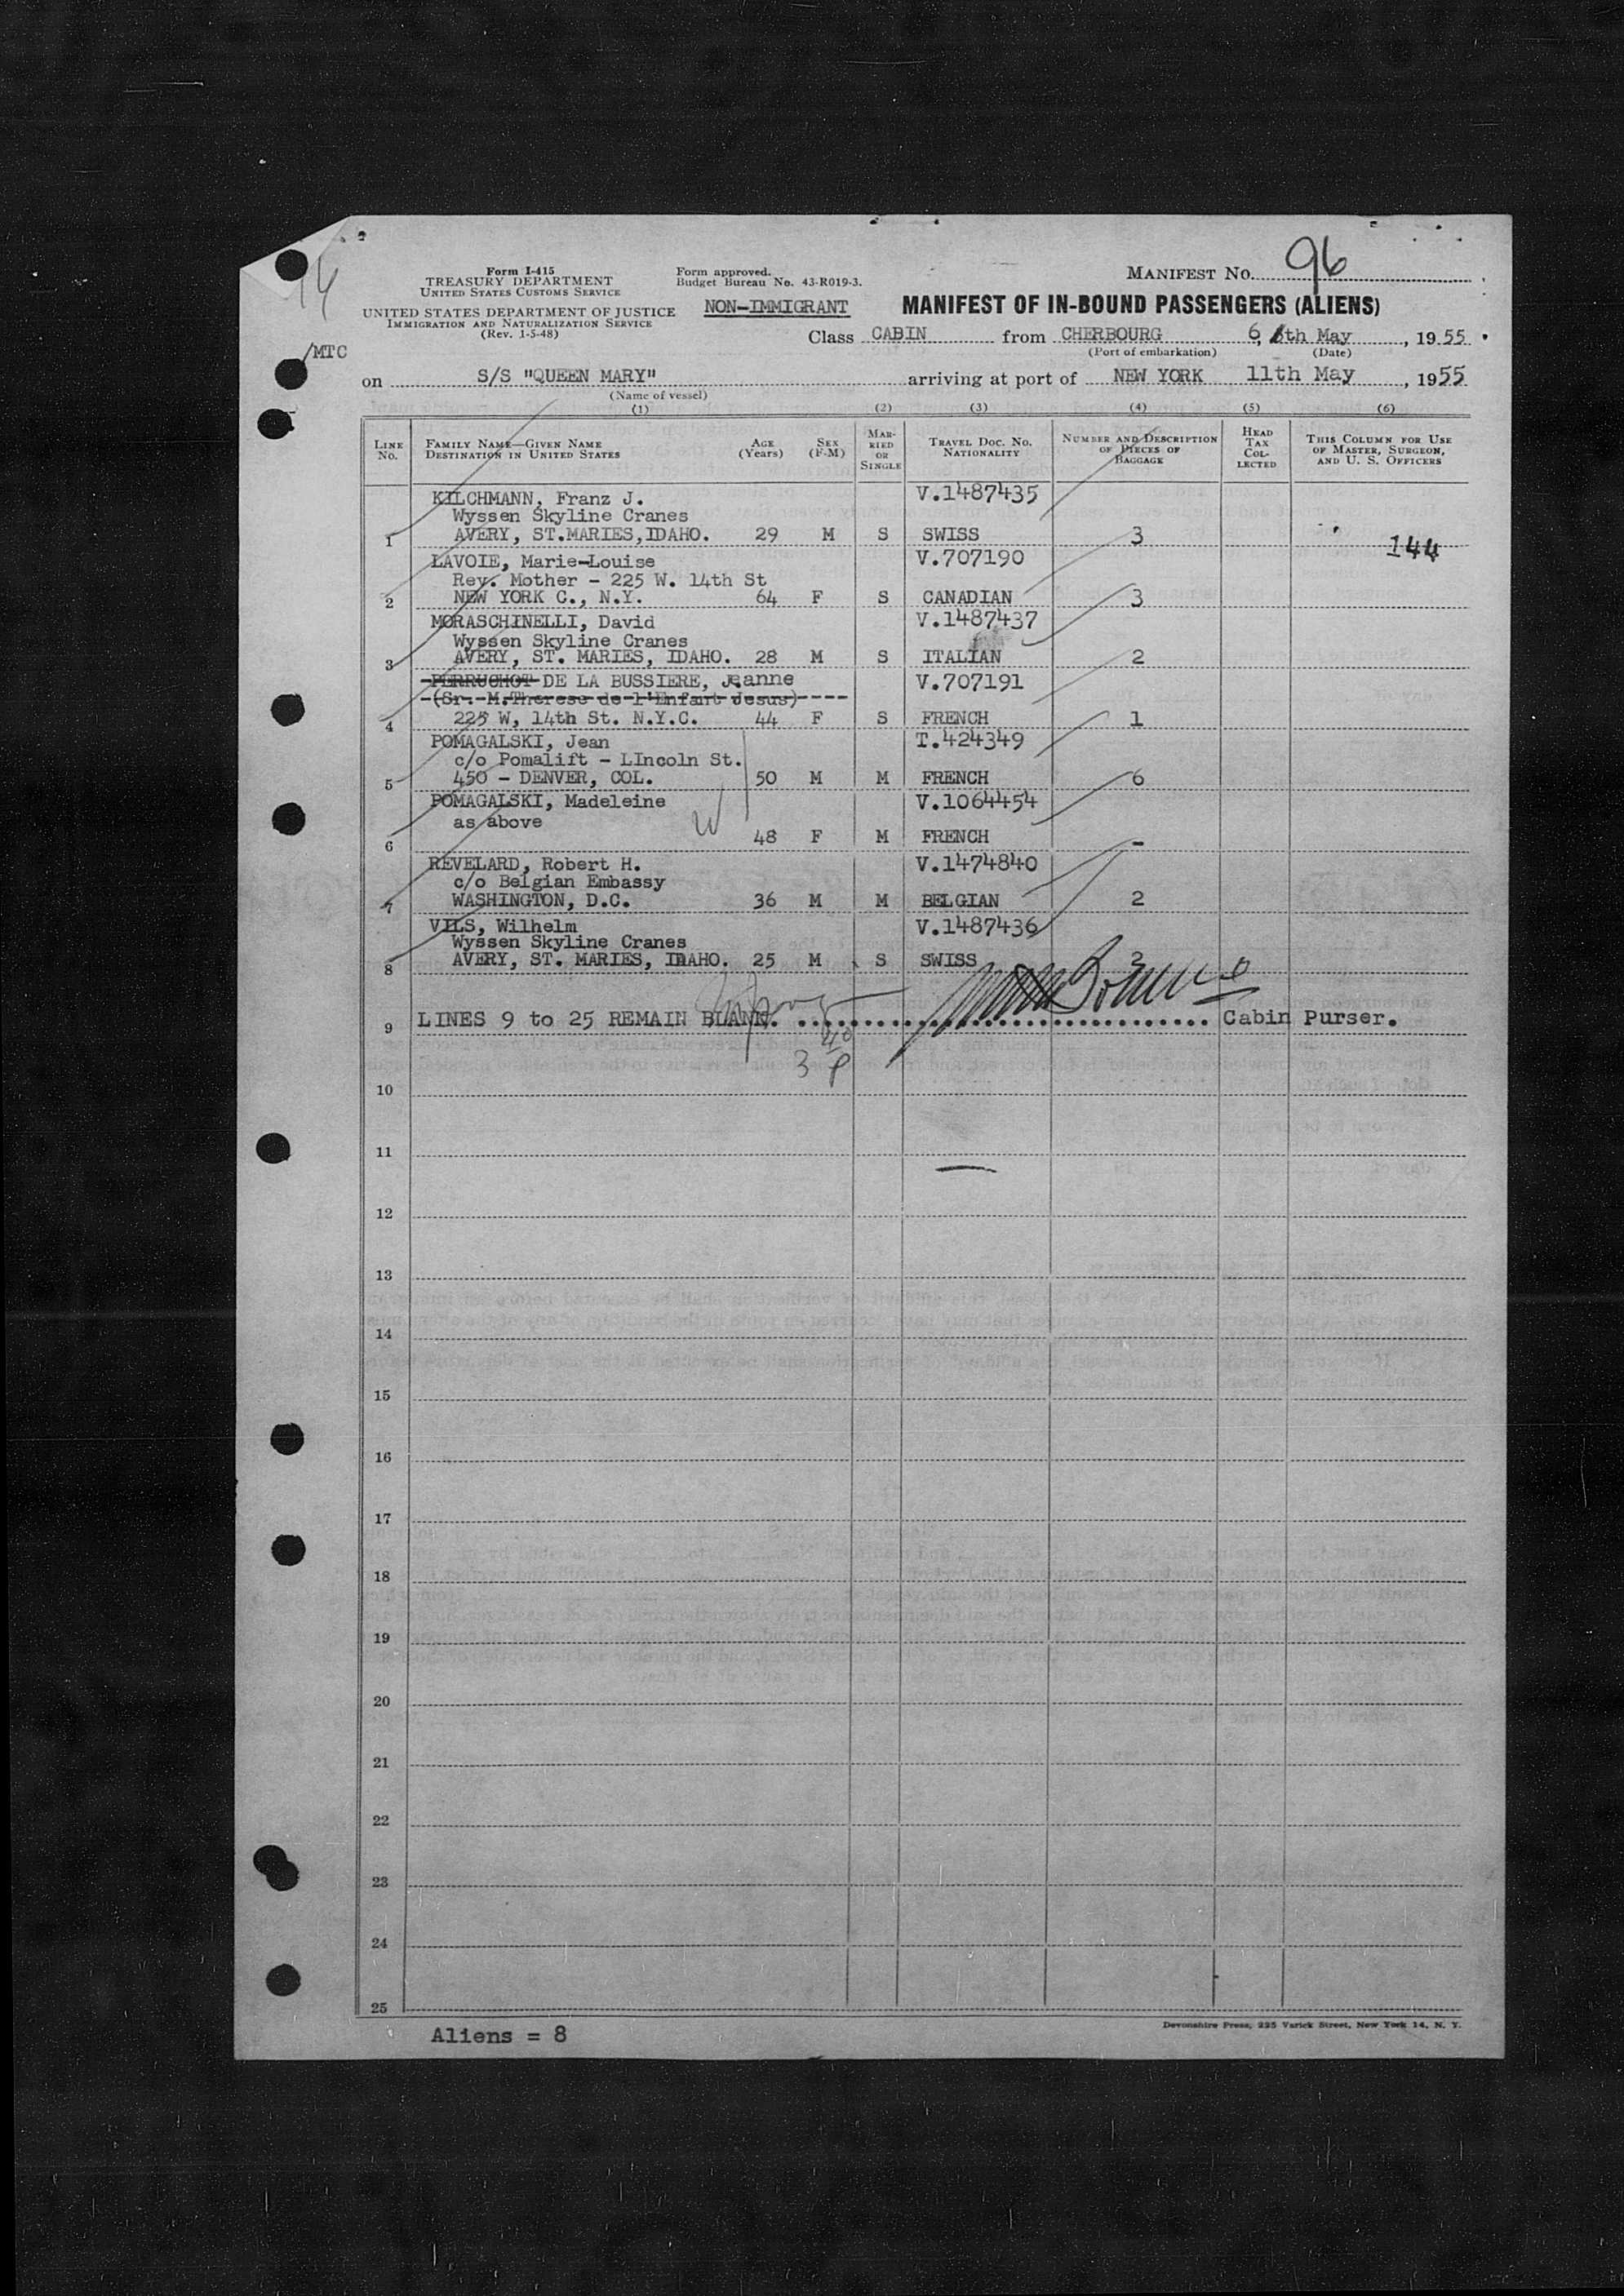 96
Form I-415
TREASURY DEPARTMENT
UNITED STATES CUSTOMS SERVICE
Form approved.
Budget Bureau No. 43-R019-3.
MANIFEST NO.
UNITED STATES DEPARTMENT OF JUSTICE
IMMIGRATION AND NATURALIZATION SERVICE
(Rev. 1-5-48)
NON-IMMIGRANT
MANIFEST OF IN-BOUND PASSENGERS (ALIENS)
/MTC
Class CABIN from CHERBOURG 6, th May, 1955.
(Port of embarkation) (Date)
on S/S "QUEEN MARY" arriving at port of NEW YORK 11th May, 1955
(Name of vessel)
(1) (2) (3) (4) (5) (6)
LINE No. FAMILY NAME—GIVEN NAME DESTINATION IN UNITED STATES AGE (Years) SEX (F-M) MARRIED OR SINGLE TRAVEL DOC. NO. NATIONALITY NUMBER AND DESCRIPTION OF PIECES OF BAGGAGE HEAD TAX COLLECTED THIS COLUMN FOR USE OF MASTER, SURGEON, AND U. S. OFFICERS
KILCHMANN, Franz J. V.1487435
Wyssen Skyline Cranes
1 AVERY, ST.MARIES,IDAHO. 29 M S SWISS 3 144
LAVOIE, Marie-Louise V.707190
Rev. Mother - 225 W. 14th St
2 NEW YORK C., N.Y. 64 F S CANADIAN 3
MORASCHINELLI, David V.1487437
Wyssen Skyline Cranes
3 AVERY, ST. MARIES, IDAHO. 28 M S ITALIAN 2
PERRUCHOT DE LA BUSSIERE, Jeanne V.707191
(Sr. M.Therese de l'Enfant Jesus)----
4 225 W, 14th St. N.Y.C. 44 F S FRENCH 1
POMAGALSKI, Jean T.424349
c/o Pomalift - LIncoln St.
5 450 - DENVER, COL. 50 M M FRENCH 6
POMAGALSKI, Madeleine V.1064454
as above
6 48 F M FRENCH -
REVELARD, Robert H. V.1474840
c/o Belgian Embassy
7 WASHINGTON, D.C. 36 M M BELGIAN 2
VILS, Wilhelm V.1487436
Wyssen Skyline Cranes
8 AVERY, ST. MARIES, IDAHO. 25 M S SWISS 2
9 LINES 9 to 25 REMAIN BLANK. Cabin Purser.
3
10
11
12
13
14
15
16
17
18
19
20
21
22
23
24
25
Aliens = 8
Devonshire Press, 225 Varick Street, New York 14, N. Y.